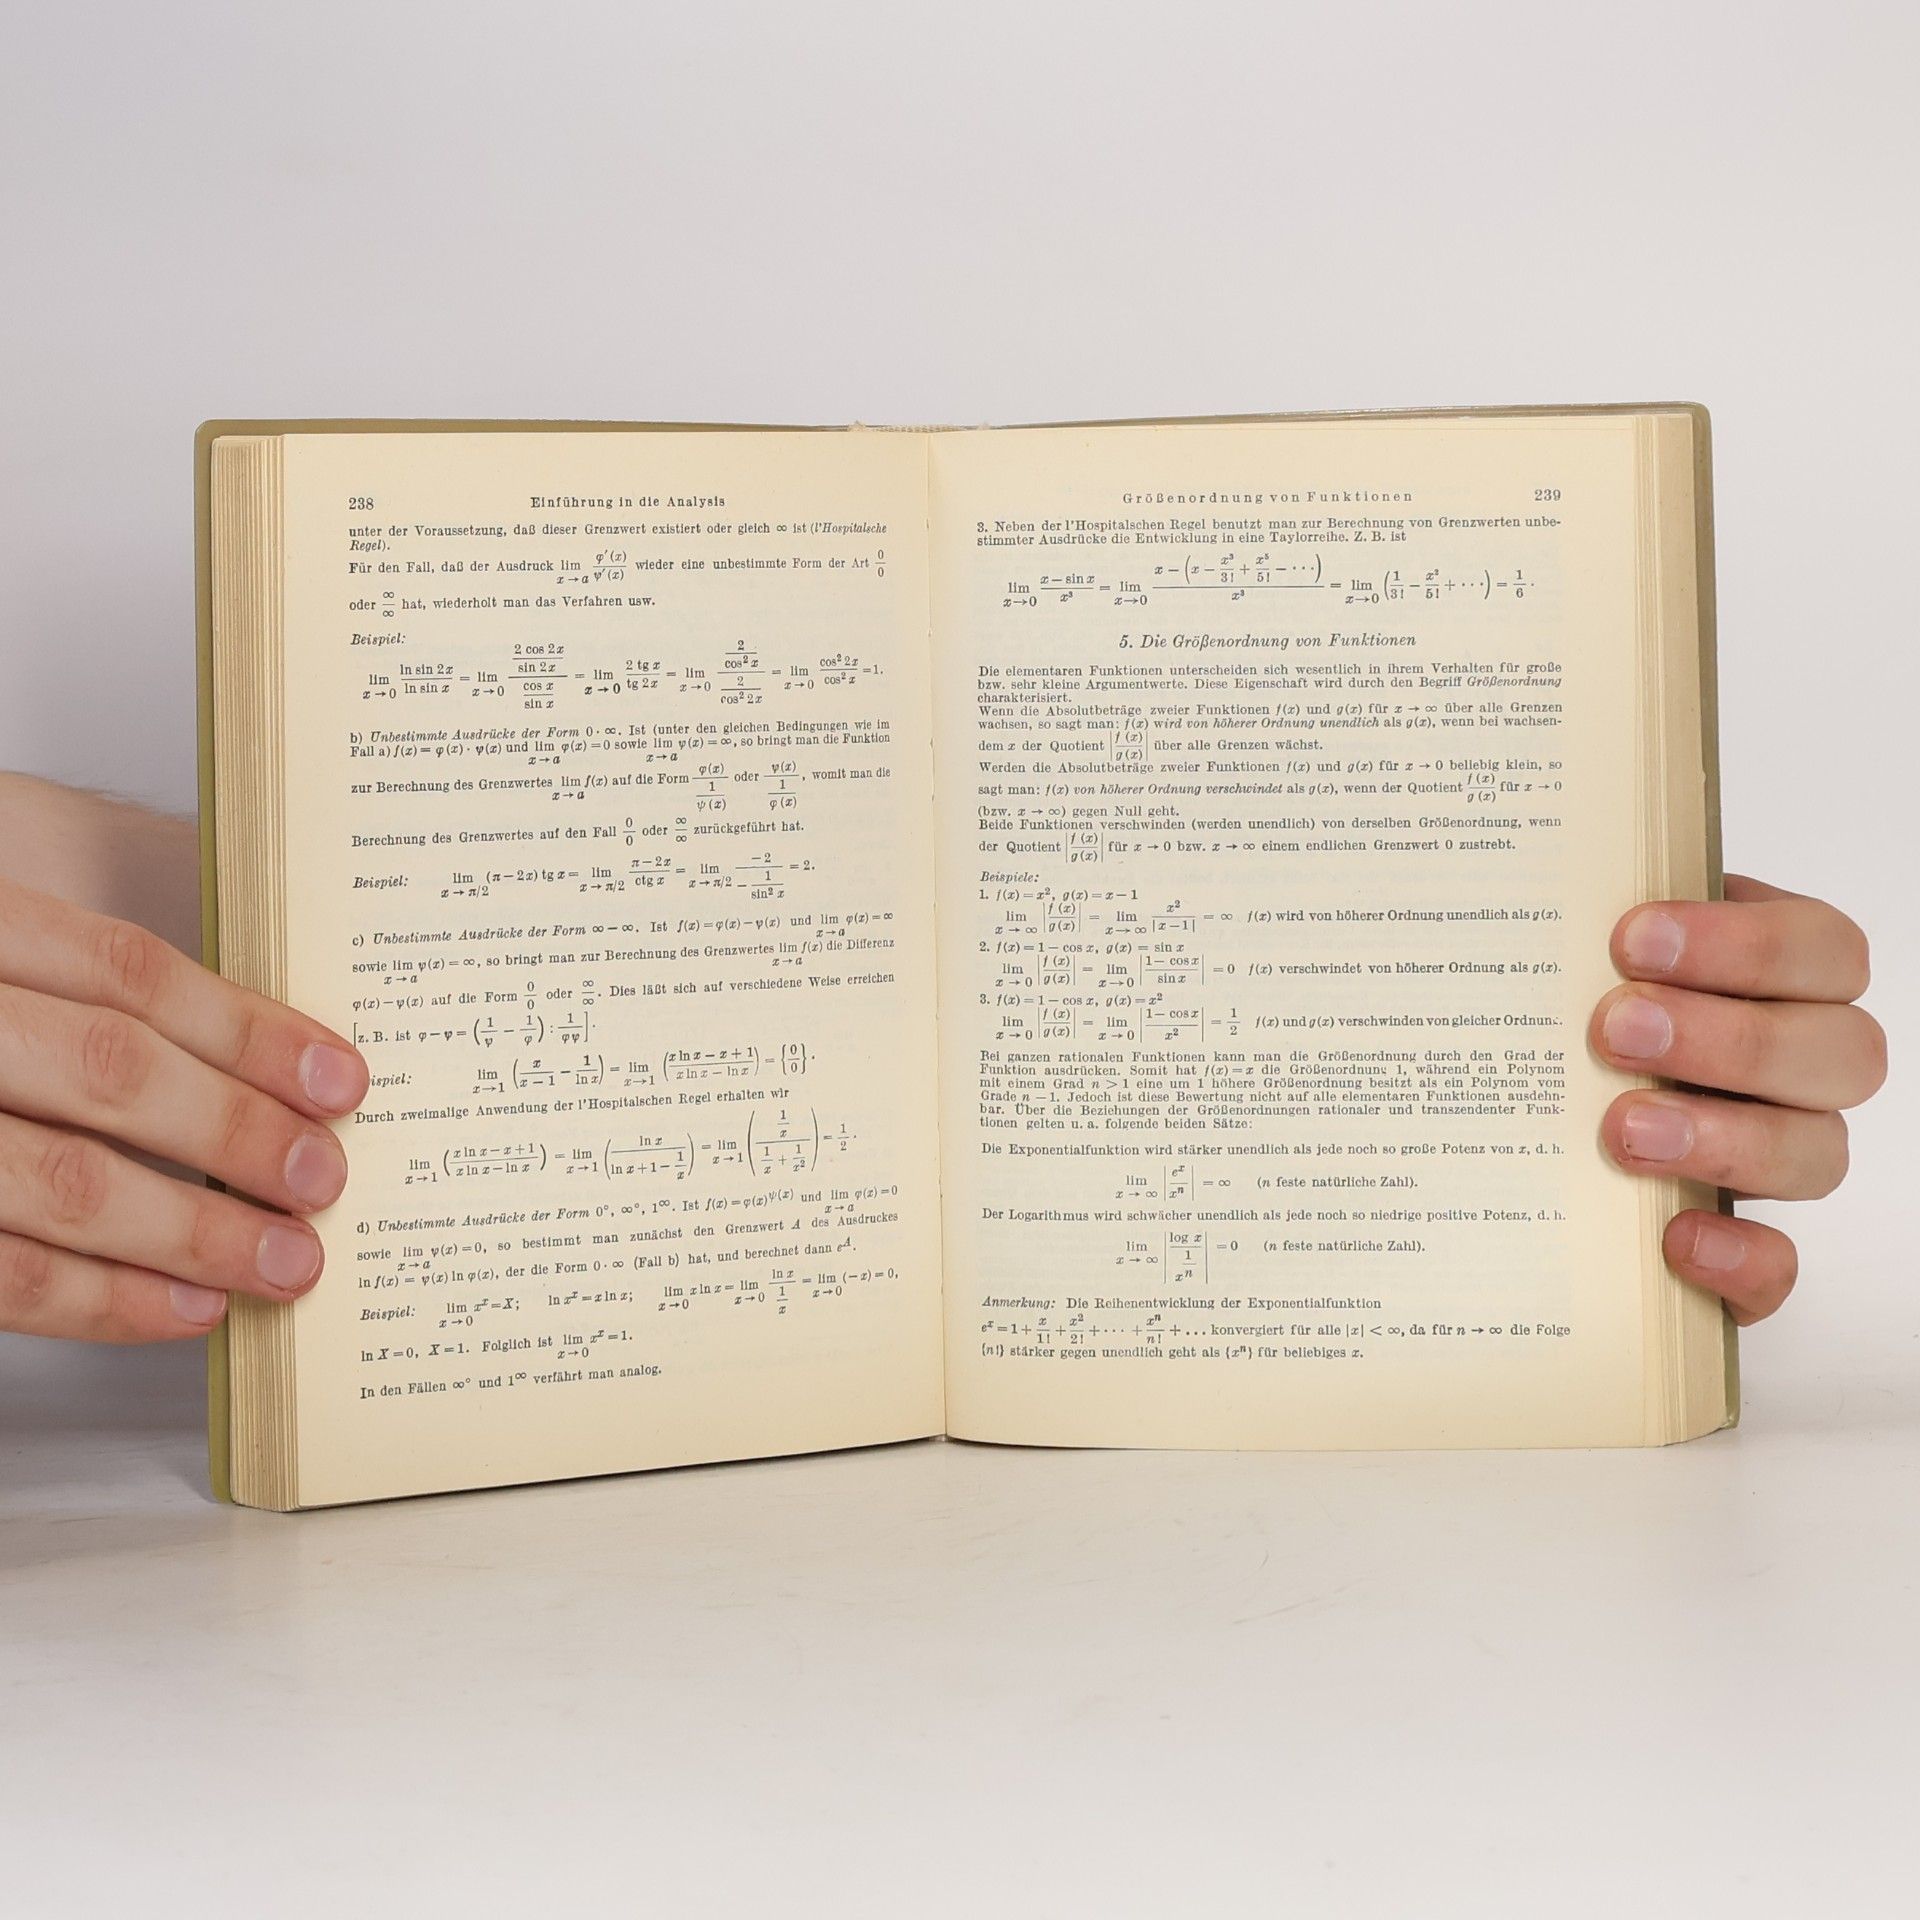 238 Einführung in die Analysis
unter der Voraussetzung, daß dieser Grenzwert existiert oder gleich ∞ ist (l'Hospitalsche
Regel).
Für den Fall, daß der Ausdruck lim x→a φ′(x)/ψ′(x) wieder eine unbestimmte Form der Art 0/0
oder ∞/∞ hat, wiederholt man das Verfahren usw.
Beispiel:
lim x→0 ln sin 2x / ln sin x = lim x→0 (2 cos 2x / sin 2x) / (cos x / sin x) = lim x→0 2 tg x / tg 2x = lim x→0 (2 / cos² x) / (2 / cos² 2x) = lim x→0 cos² 2x / cos² x = 1.
b) Unbestimmte Ausdrücke der Form 0·∞. Ist (unter den gleichen Bedingungen wie im
Fall a) f(x) = φ(x) · ψ(x) und lim x→a φ(x) = 0 sowie lim x→a ψ(x) = ∞, so bringt man die Funktion
zur Berechnung des Grenzwertes lim x→a f(x) auf die Form φ(x) / (1/ψ(x)) oder ψ(x) / (1/φ(x)), womit man die
Berechnung des Grenzwertes auf den Fall 0/0 oder ∞/∞ zurückgeführt hat.
Beispiel: lim x→π/2 (π−2x) tg x = lim x→π/2 (π−2x) / ctg x = lim x→π/2 −2 / (−1/sin² x) = 2.
c) Unbestimmte Ausdrücke der Form ∞−∞. Ist f(x) = φ(x) − ψ(x) und lim x→a φ(x) = ∞
sowie lim x→a ψ(x) = ∞, so bringt man zur Berechnung des Grenzwertes lim x→a f(x) die Differenz
φ(x) − ψ(x) auf die Form 0/0 oder ∞/∞. Dies läßt sich auf verschiedene Weise erreichen
[z. B. ist φ−ψ = (1/ψ − 1/φ) : 1/φψ].
ispiel: lim x→1 (x/(x−1) − 1/ln x) = lim x→1 ((x ln x − x + 1)/(x ln x − ln x)) = {0/0}.
Durch zweimalige Anwendung der l'Hospitalschen Regel erhalten wir
lim x→1 ((x ln x − x + 1)/(x ln x − ln x)) = lim x→1 (ln x / (ln x + 1 − 1/x)) = lim x→1 ((1/x) / (1/x + 1/x²)) = 1/2.
d) Unbestimmte Ausdrücke der Form 0°, ∞°, 1^∞. Ist f(x) = φ(x)^ψ(x) und lim x→a φ(x) = 0
sowie lim x→a ψ(x) = 0, so bestimmt man zunächst den Grenzwert A des Ausdruckes
ln f(x) = ψ(x) ln φ(x), der die Form 0·∞ (Fall b) hat, und berechnet dann e^A.
Beispiel: lim x→0 x^x = X; ln x^x = x ln x; lim x→0 x ln x = lim x→0 ln x / (1/x) = lim x→0 (−x) = 0,
ln X = 0, X = 1. Folglich ist lim x→0 x^x = 1.
In den Fällen ∞° und 1^∞ verfährt man analog.
Größenordnung von Funktionen 239
3. Neben der l'Hospitalschen Regel benutzt man zur Berechnung von Grenzwerten unbe-
stimmter Ausdrücke die Entwicklung in eine Taylorreihe. Z. B. ist
lim x→0 (x − sin x)/x³ = lim x→0 (x − (x − x³/3! + x⁵/5! − ···))/x³ = lim x→0 (1/3! − x²/5! + ···) = 1/6.
5. Die Größenordnung von Funktionen
Die elementaren Funktionen unterscheiden sich wesentlich in ihrem Verhalten für große
bzw. sehr kleine Argumentwerte. Diese Eigenschaft wird durch den Begriff Größenordnung
charakterisiert.
Wenn die Absolutbeträge zweier Funktionen f(x) und g(x) für x → ∞ über alle Grenzen
wachsen, so sagt man: f(x) wird von höherer Ordnung unendlich als g(x), wenn bei wachsen-
dem x der Quotient |f(x)/g(x)| über alle Grenzen wächst.
Werden die Absolutbeträge zweier Funktionen f(x) und g(x) für x → 0 beliebig klein, so
sagt man: f(x) von höherer Ordnung verschwindet als g(x), wenn der Quotient f(x)/g(x) für x → 0
(bzw. x → ∞) gegen Null geht.
Beide Funktionen verschwinden (werden unendlich) von derselben Größenordnung, wenn
der Quotient |f(x)/g(x)| für x → 0 bzw. x → ∞ einem endlichen Grenzwert 0 zustrebt.
Beispiele:
1. f(x) = x², g(x) = x − 1
lim x→∞ |f(x)/g(x)| = lim x→∞ x²/|x−1| = ∞ f(x) wird von höherer Ordnung unendlich als g(x).
2. f(x) = 1 − cos x, g(x) = sin x
lim x→0 |f(x)/g(x)| = lim x→0 |(1 − cos x)/sin x| = 0 f(x) verschwindet von höherer Ordnung als g(x).
3. f(x) = 1 − cos x, g(x) = x²
lim x→0 |f(x)/g(x)| = lim x→0 |(1 − cos x)/x²| = 1/2 f(x) und g(x) verschwinden von gleicher Ordnung.
Bei ganzen rationalen Funktionen kann man die Größenordnung durch den Grad der
Funktion ausdrücken. Somit hat f(x) = x die Größenordnung 1, während ein Polynom
mit einem Grad n > 1 eine um 1 höhere Größenordnung besitzt als ein Polynom vom
Grade n − 1. Jedoch ist diese Bewertung nicht auf alle elementaren Funktionen ausdehn-
bar. Über die Beziehungen der Größenordnungen rationaler und transzendenter Funk-
tionen gelten u. a. folgende beiden Sätze:
Die Exponentialfunktion wird stärker unendlich als jede noch so große Potenz von x, d. h.
lim x→∞ |e^x/x^n| = ∞ (n feste natürliche Zahl).
Der Logarithmus wird schwächer unendlich als jede noch so niedrige positive Potenz, d. h.
lim x→∞ |log x / x^(1/n)| = 0 (n feste natürliche Zahl).
Anmerkung: Die Reihenentwicklung der Exponentialfunktion
e^x = 1 + x/1! + x²/2! + ··· + x^n/n! + ... konvergiert für alle |x| < ∞, da für n → ∞ die Folge
{n!} stärker gegen unendlich geht als {x^n} für beliebiges x.